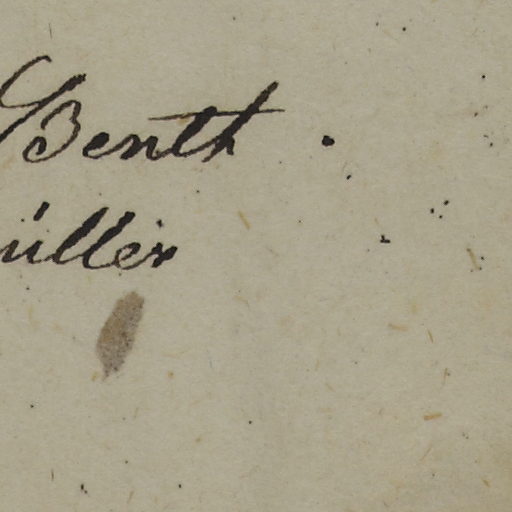 Benth.
üller